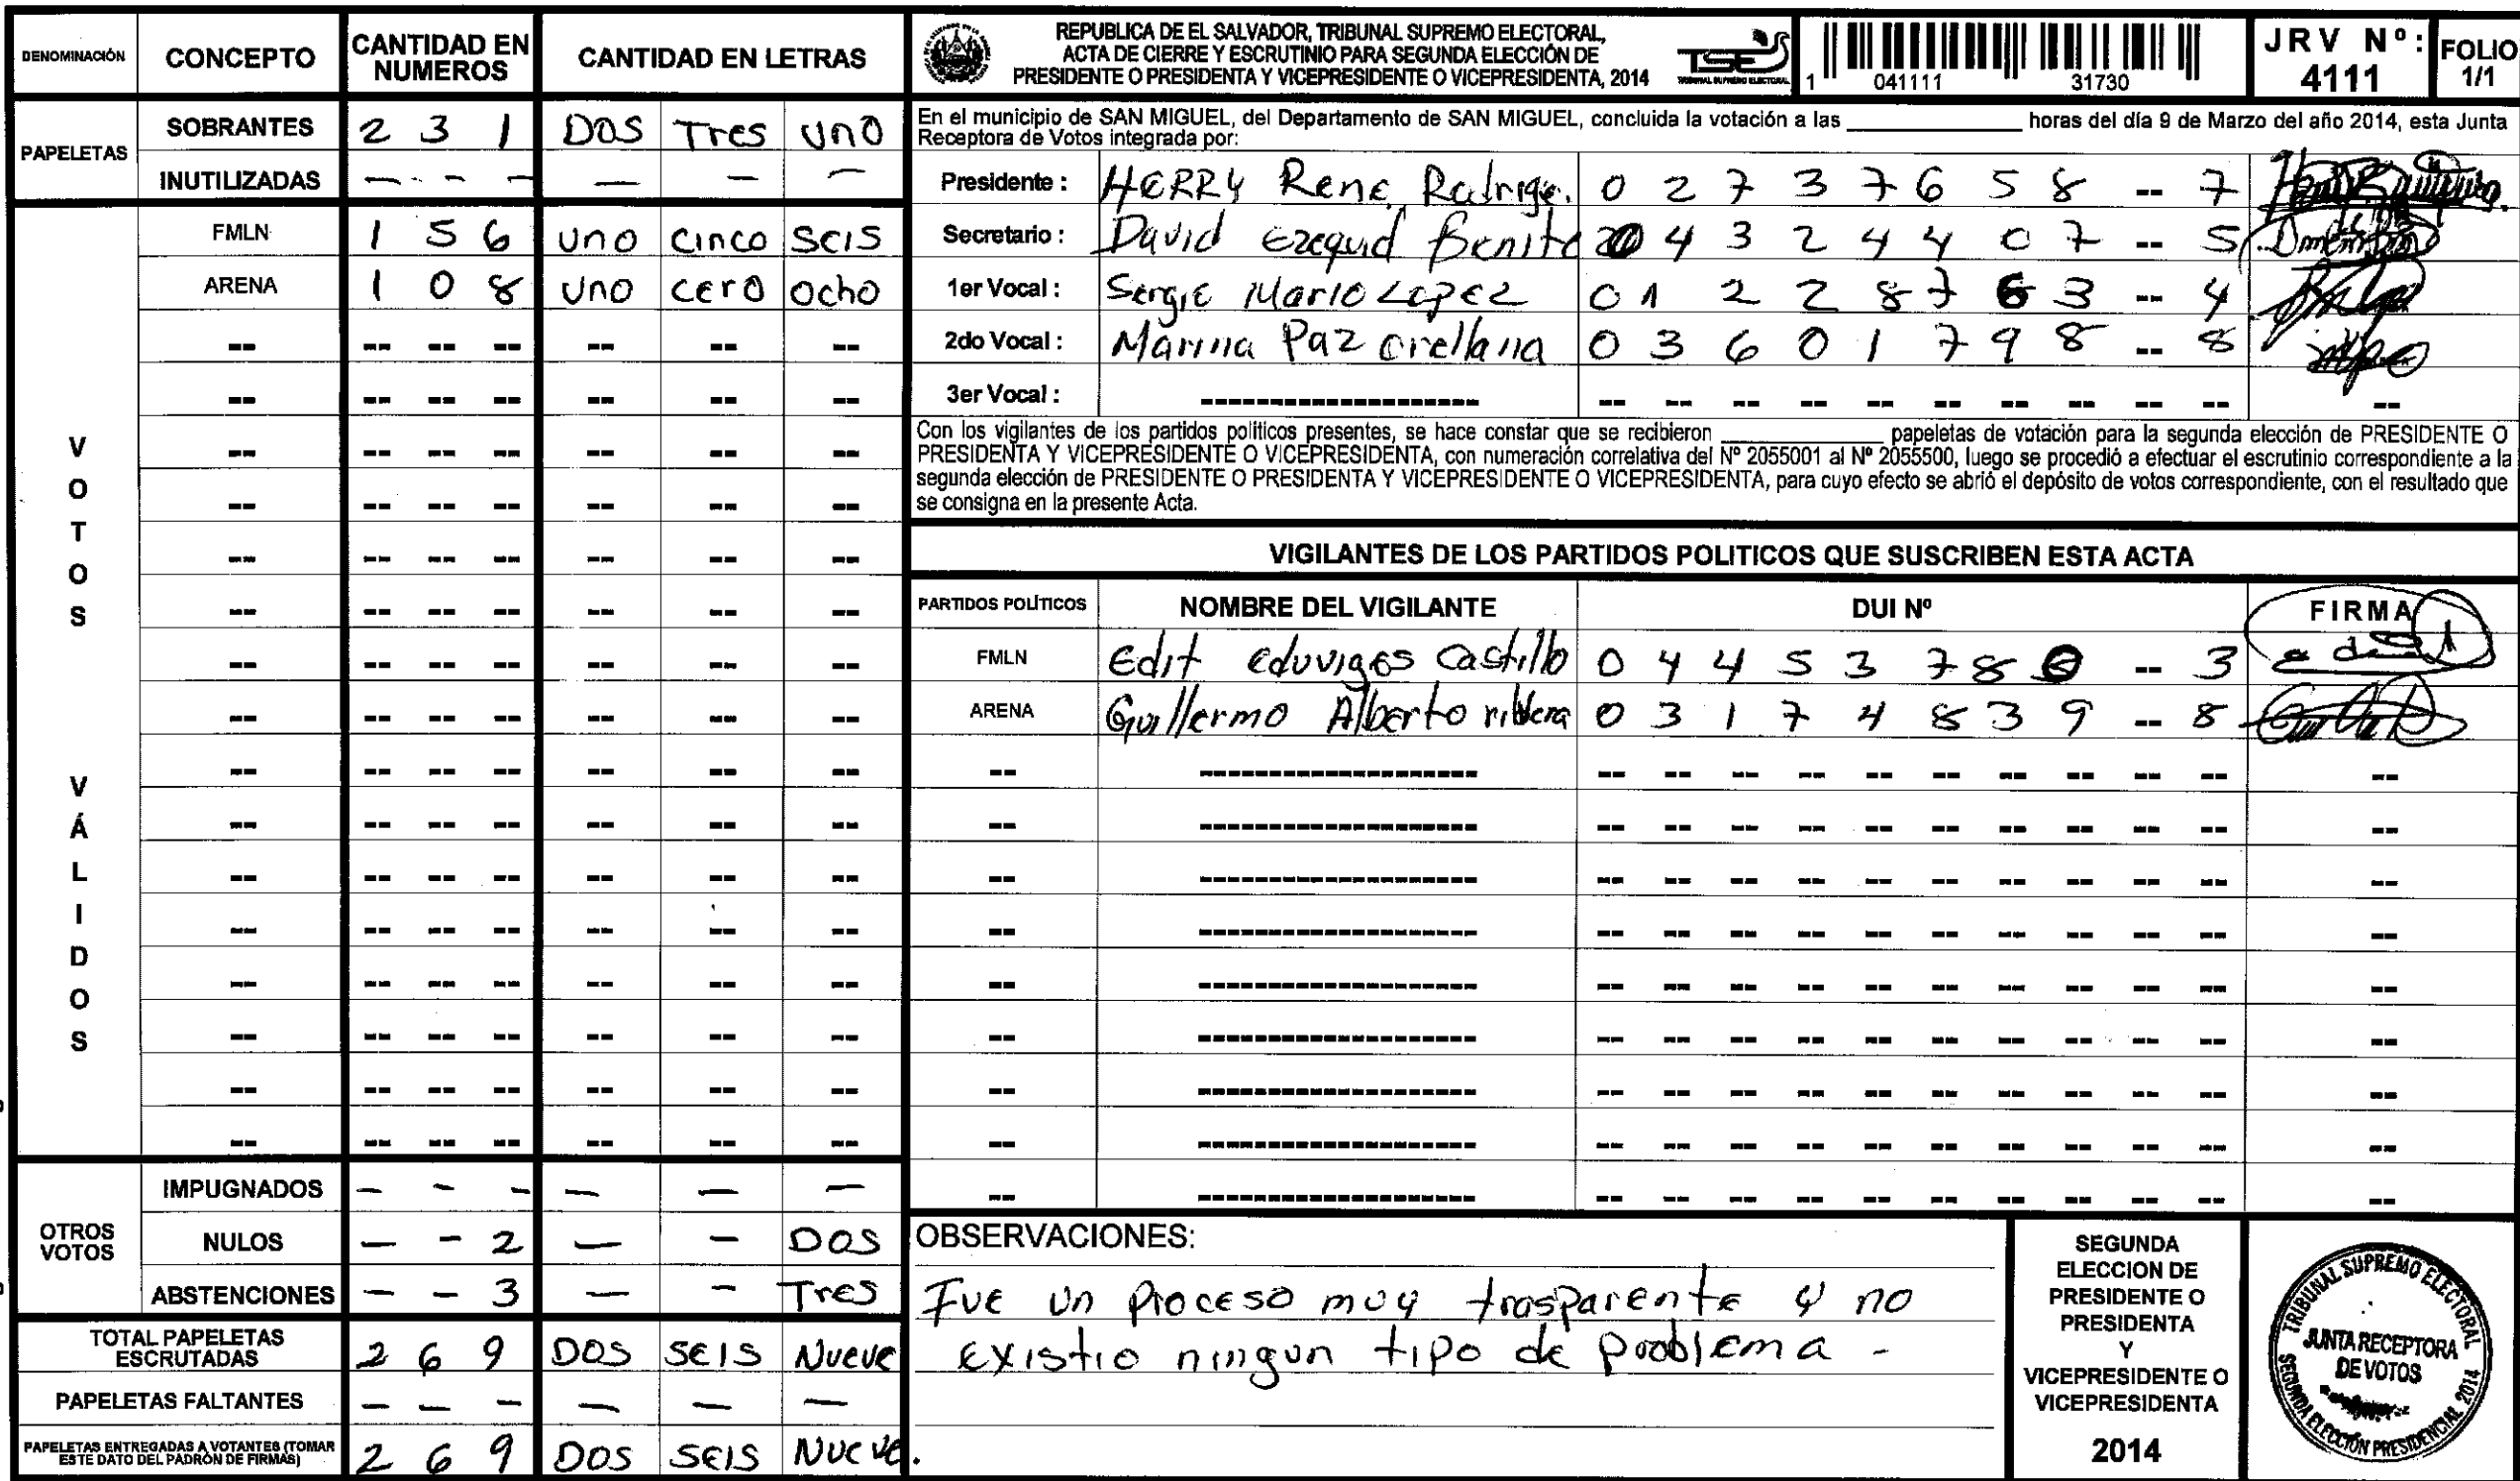 DENOMINACIÓN CONCEPTO CANTIDAD EN NUMEROS CANTIDAD EN LETRAS
PAPELETAS
SOBRANTES 2 3 1 DOS Tres uno
INUTILIZADAS - - - - - -
VOTOS VÁLIDOS
FMLN 1 5 6 uno cinco seis
ARENA 1 0 8 uno cero ocho
OTROS VOTOS
IMPUGNADOS - - - - - -
NULOS - - 2 - - DOS
ABSTENCIONES - - 3 - - Tres
TOTAL PAPELETAS ESCRUTADAS 2 6 9 DOS SEIS Nueve
PAPELETAS FALTANTES - - - - - -
PAPELETAS ENTREGADAS A VOTANTES (TOMAR ESTE DATO DEL PADRÓN DE FIRMAS) 2 6 9 DOS SEIS Nueve.
REPUBLICA DE EL SALVADOR, TRIBUNAL SUPREMO ELECTORAL,
ACTA DE CIERRE Y ESCRUTINIO PARA SEGUNDA ELECCIÓN DE
PRESIDENTE O PRESIDENTA Y VICEPRESIDENTE O VICEPRESIDENTA, 2014
TSE
TRIBUNAL SUPREMO ELECTORAL
1 041111 31730
JRV Nº: 4111
FOLIO 1/1
En el municipio de SAN MIGUEL, del Departamento de SAN MIGUEL, concluida la votación a las ____ horas del día 9 de Marzo del año 2014, esta Junta
Receptora de Votos integrada por:
Presidente: HERRY Rene Rodrige. 0 2 7 3 7 6 5 8 -- 7
Secretario: David Ezequiel Benite 0 4 3 2 4 4 0 7 -- 5
1er Vocal: Sergio Mario Lopez 0 1 2 2 8 7 6 3 -- 4
2do Vocal: Marina Paz orellana 0 3 6 0 1 7 9 8 -- 8
3er Vocal: --
Con los vigilantes de los partidos políticos presentes, se hace constar que se recibieron ____ papeletas de votación para la segunda elección de PRESIDENTE O
PRESIDENTA Y VICEPRESIDENTE O VICEPRESIDENTA, con numeración correlativa del Nº 2055001 al Nº 2055500, luego se procedió a efectuar el escrutinio correspondiente a la
segunda elección de PRESIDENTE O PRESIDENTA Y VICEPRESIDENTE O VICEPRESIDENTA, para cuyo efecto se abrió el depósito de votos correspondiente, con el resultado que
se consigna en la presente Acta.
VIGILANTES DE LOS PARTIDOS POLITICOS QUE SUSCRIBEN ESTA ACTA
PARTIDOS POLÍTICOS NOMBRE DEL VIGILANTE DUI Nº FIRMA
FMLN Edit eduviges Castillo 0 4 4 5 3 7 8 0 -- 3
ARENA Guillermo Alberto rivera 0 3 1 7 4 8 3 9 -- 8
OBSERVACIONES:
Fue un proceso muy trasparente y no
existio ningun tipo de problema -
SEGUNDA
ELECCION DE
PRESIDENTE O
PRESIDENTA
Y
VICEPRESIDENTE O
VICEPRESIDENTA
2014
TRIBUNAL SUPREMO ELECTORAL
JUNTA RECEPTORA
DE VOTOS
SEGUNDA ELECCIÓN PRESIDENCIAL 2014